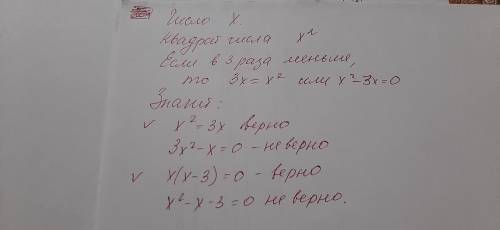 Число X.
Квадрат числа x²
Если в 3 раза меньше,
то 3x = x² или x²-3x=0
Значит:
v x² = 3x верно
3x² - x = 0 - неверно
v x(x-3) = 0 - верно
x² - x - 3 = 0 неверно.